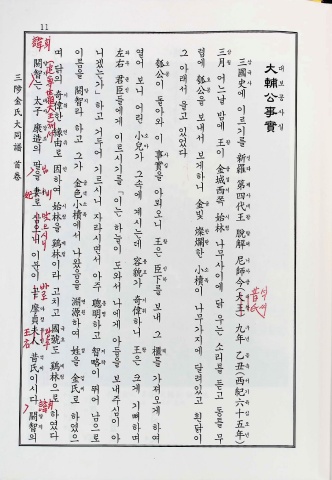 11
大輔公事實
대보공사실
三國史에 이르기를 新羅 第四代王 脫解 尼師今(大王) 九年 乙丑(西紀六十五年)
三月 어느날 밤에 王이 金城西쪽 始林 나무사이에 닭 우는 소리를 듣고 동틀 무
렵에 瓠公을 보내서 보게하니 金빛 燦爛한 小櫝이 나무가지에 달려있고 흰닭이
그 아래서 울고 있었다
瓠公이 돌아와 이 事實을 아뢰오니 王은 臣下를 보내 그 櫃를 가져오게 하여
열어 보니 어린 小兒가 그속에 계시는데 容貌가 奇偉하니 王은 크게 기뻐하며
左右 君臣들에게 이르시기를 「이는 하늘이 도와서 나에게 아들을 보내주심이 아
니겠는가」하고 거두어 기르시니 자라시면서 아주 聰明하고 智略이 뛰어 남으로
이름을 閼智라 하고 그가 金色小櫝에서 나왔음을 溯源하여 姓을 金氏로 하였으
며 닭의 奇偉한 緣由로 因하여 始林을 鷄林이라 고치고 國號도 鷄林으로 하였다
閼智는 太子 康造의 딸을 妻로 삼으니 이 분이 곧 摩貞夫人 昔氏이시다 閼智의
三陟金氏大同譜 首卷
昔氏
석씨
諱
휘
妃
비
맞으시니
바로
王
諱
휘